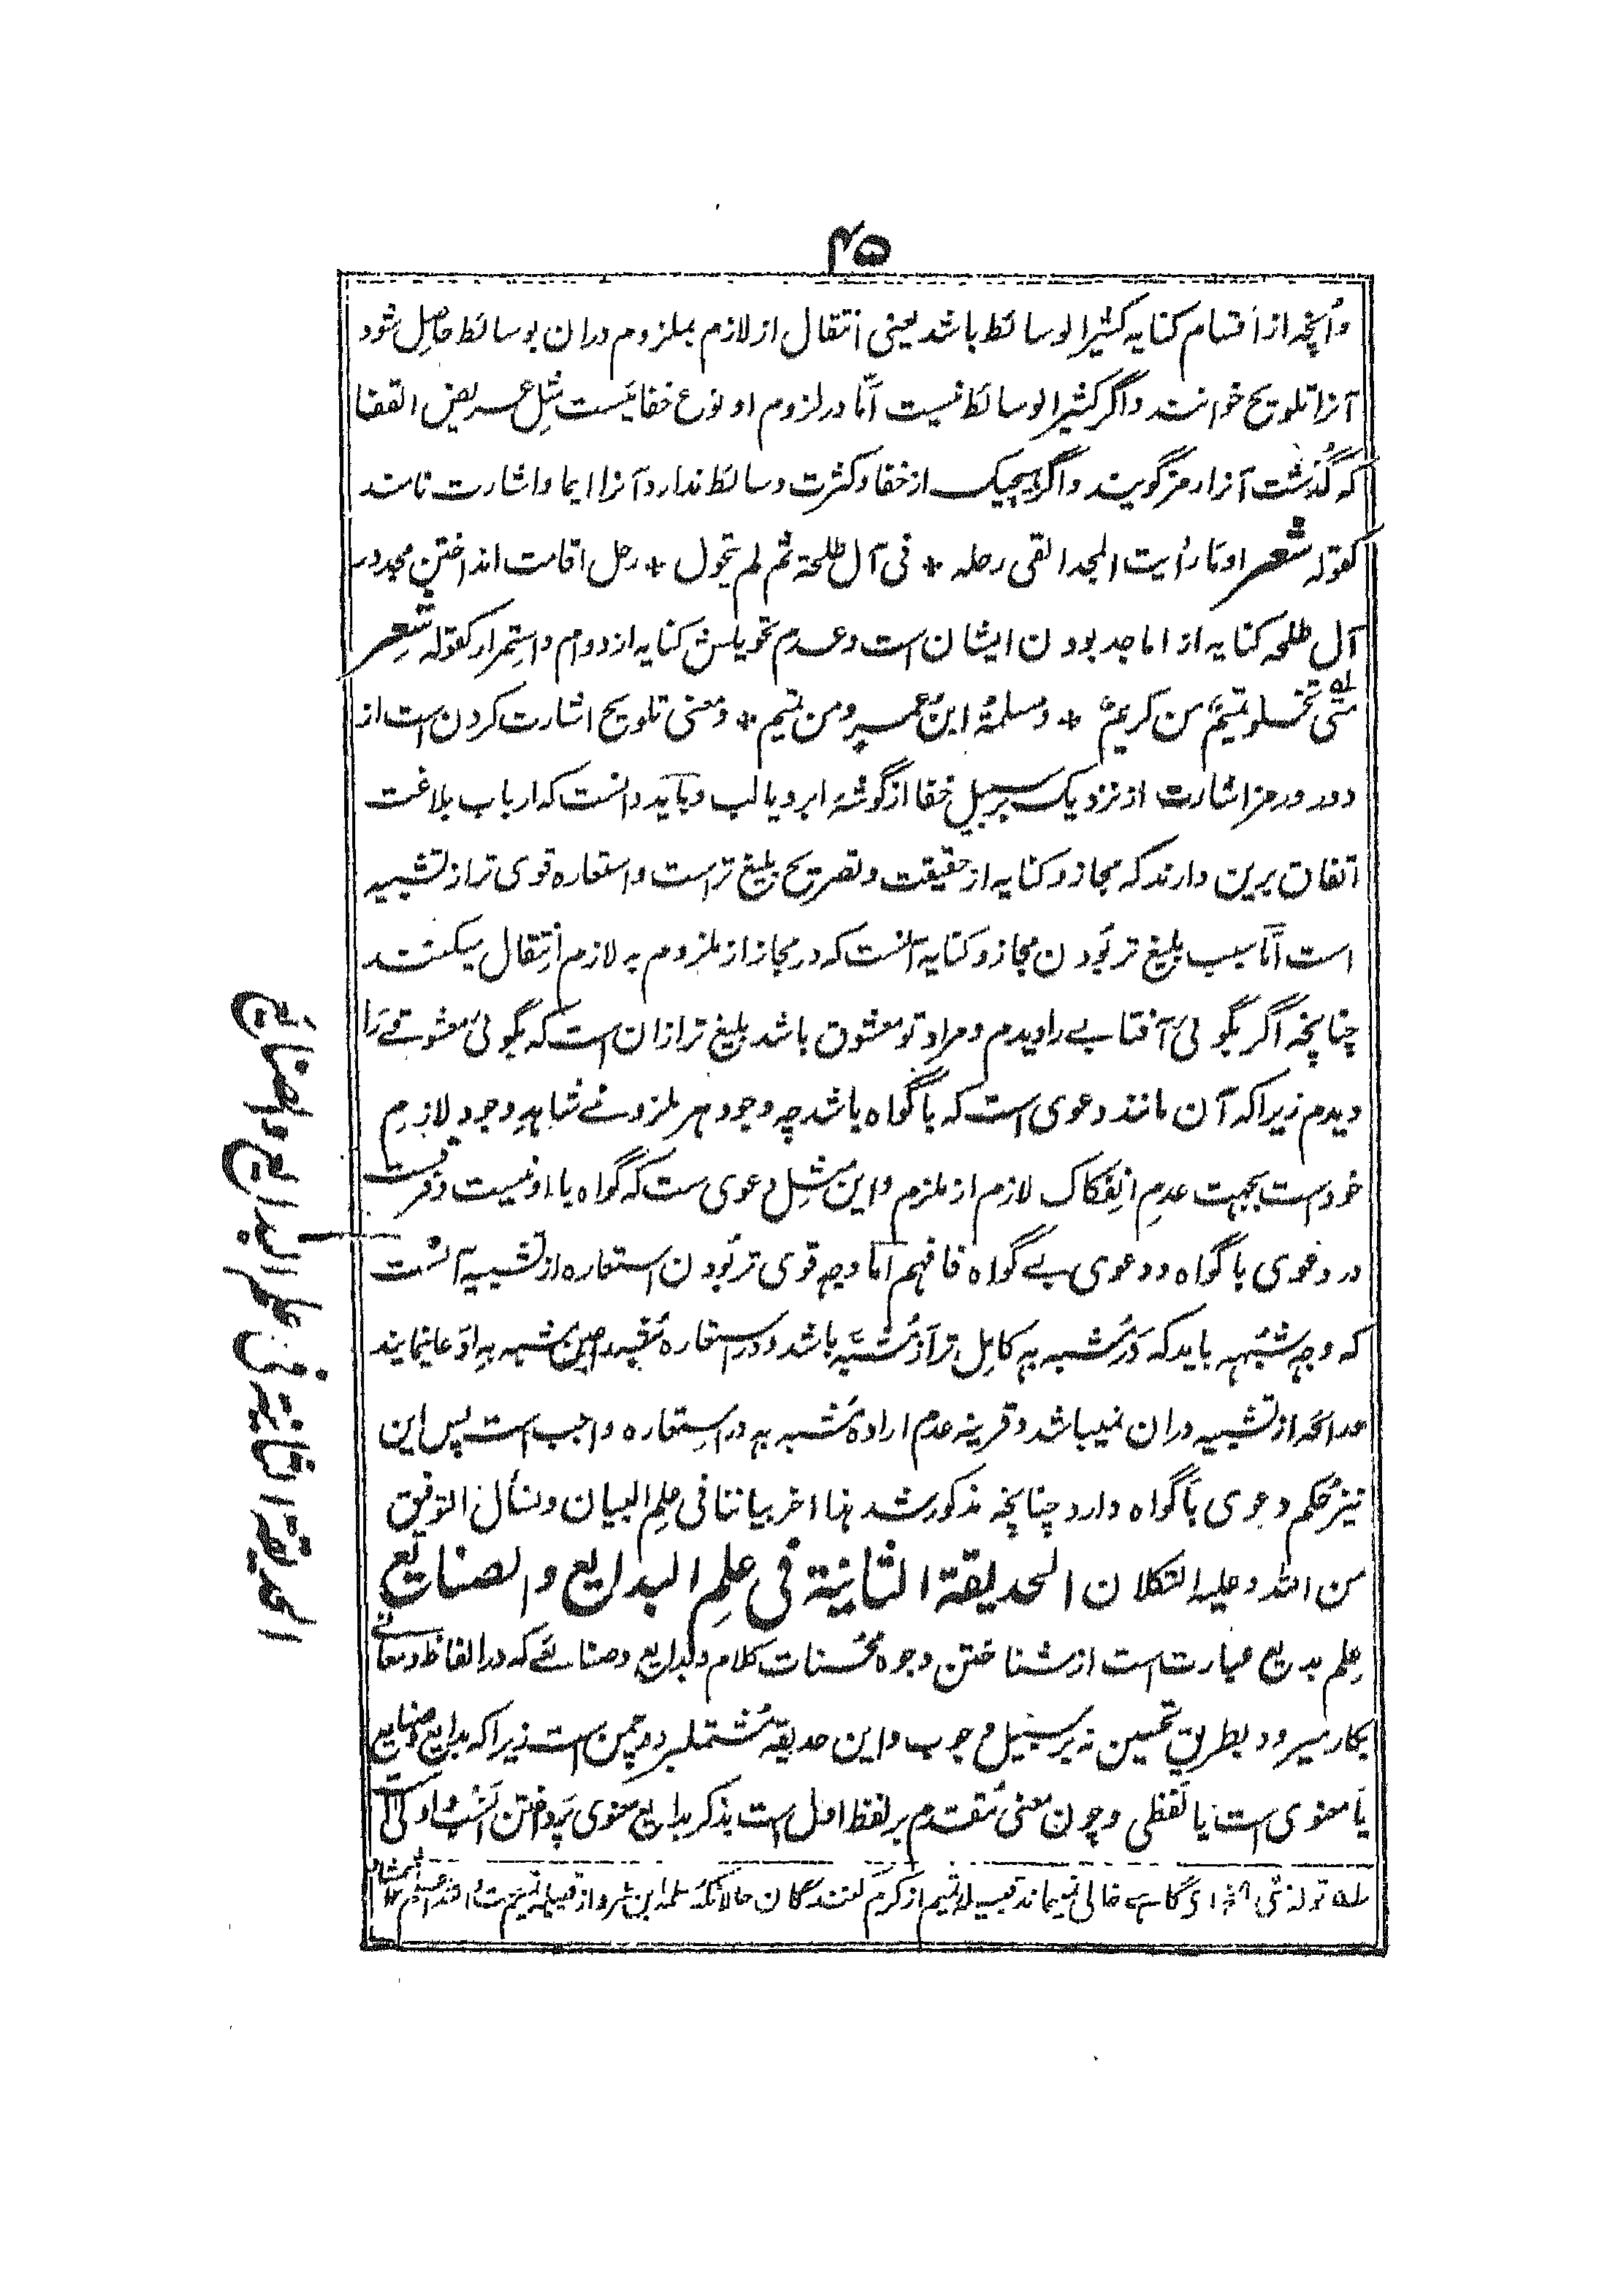 ۴۵
وآنچه از اقسام کنایه کثیرالوسائط باشد یعنی انتقال از لازم بملزوم دران بوسائط حاصل شود
آنرا تلویح خوانند و اگر کثیرالوسائط نیست امّا در لزوم او نوع خفائیست مثل عریض القفا
که گذشت آنرا رمز گویند و اگر هیچیک از خفا و کثرت وسائط ندارد آنرا ایما و اشارت نامند
کقوله شعر اوما رأیت المجد القی رحله * فی آل طلحة ثم لم یتحول * رحل اقامت انداختن مجد در
آل طلحه کنایه از اماجد بودن ایشان است و عدم تحویلش کنایه از دوام و استمرار کقوله شعر
متی تخلو تمیم من کریم * ومسلمة ابن عمرو من تمیم * و معنی تلویح اشارت کردن است از
دور و رمز اشارت از نزدیک بر سبیل خفا از گوشهٔ ابرو یا لب و باید دانست که ارباب بلاغت
اتفاق برین دارند که مجاز و کنایه از حقیقت و تصریح بلیغ تر است و استعاره قوی تر از تشبیه
است امّا سبب بلیغ تر بودن مجاز و کنایه آنست که در مجاز از ملزوم به لازم انتقال میکنند
چنانچه اگر بگوئی آفتابے را دیدم و مراد تو معشوق باشد بلیغ تر ازان است که بگوئی معشوقے را
دیدم زیرا که آن مانند دعوی است که باگواه باشد چه وجود هر ملزومے شاهد وجود لازم
خود است بجهت عدم انفکاک لازم از ملزوم و این مثل دعوی ست که گواه با او نیست و فرقست
در دعوی باگواه و دعوی بے گواه فافهم امّا وجه قوی تر بودن استعاره از تشبیه آنست
که وجه شبه باید که در مشبه به کامل تر از مشبه باشد و در استعاره مشبه عین مشبه به ادّعا نمایند
مدانحه از تشبیه دران نمیباشد و قرینه عدم ارادهٔ مشبه به در استعاره واجب است پس این
نیز حکم دعوی باگواه دارد چنانچه مذکور شد هذا اخر بیاننا فی علم البیان ونسأل التوفیق
من الله وعلیه التکلان الحدیقة الثانیة فی علم البدایع والصنایع
علم بدیع عبارت است از شناختن وجوه محسنات کلام و بدایع و صنائعے که در الفاظ و معانے
بکار میرود بطریق تحسین نه بر سبیل وجوب و این حدیقه مشتمل بر دو چمن است زیرا که بدایع و صنایع
یا معنوی است یا لفظی و چون معنی مقدم بر لفظ اصل است بذکر بدایع معنوی پرداختن انسب و اولی
له قوله متی الخ ای گاہے خالی نمیماند قبیلهٔ تمیم از کرم کنندگان حالانکه مسلمه ابن عمرو از قبیلهٔ تمیم ست
الحدیقة الثانیة فی علم البدایع والصنایع